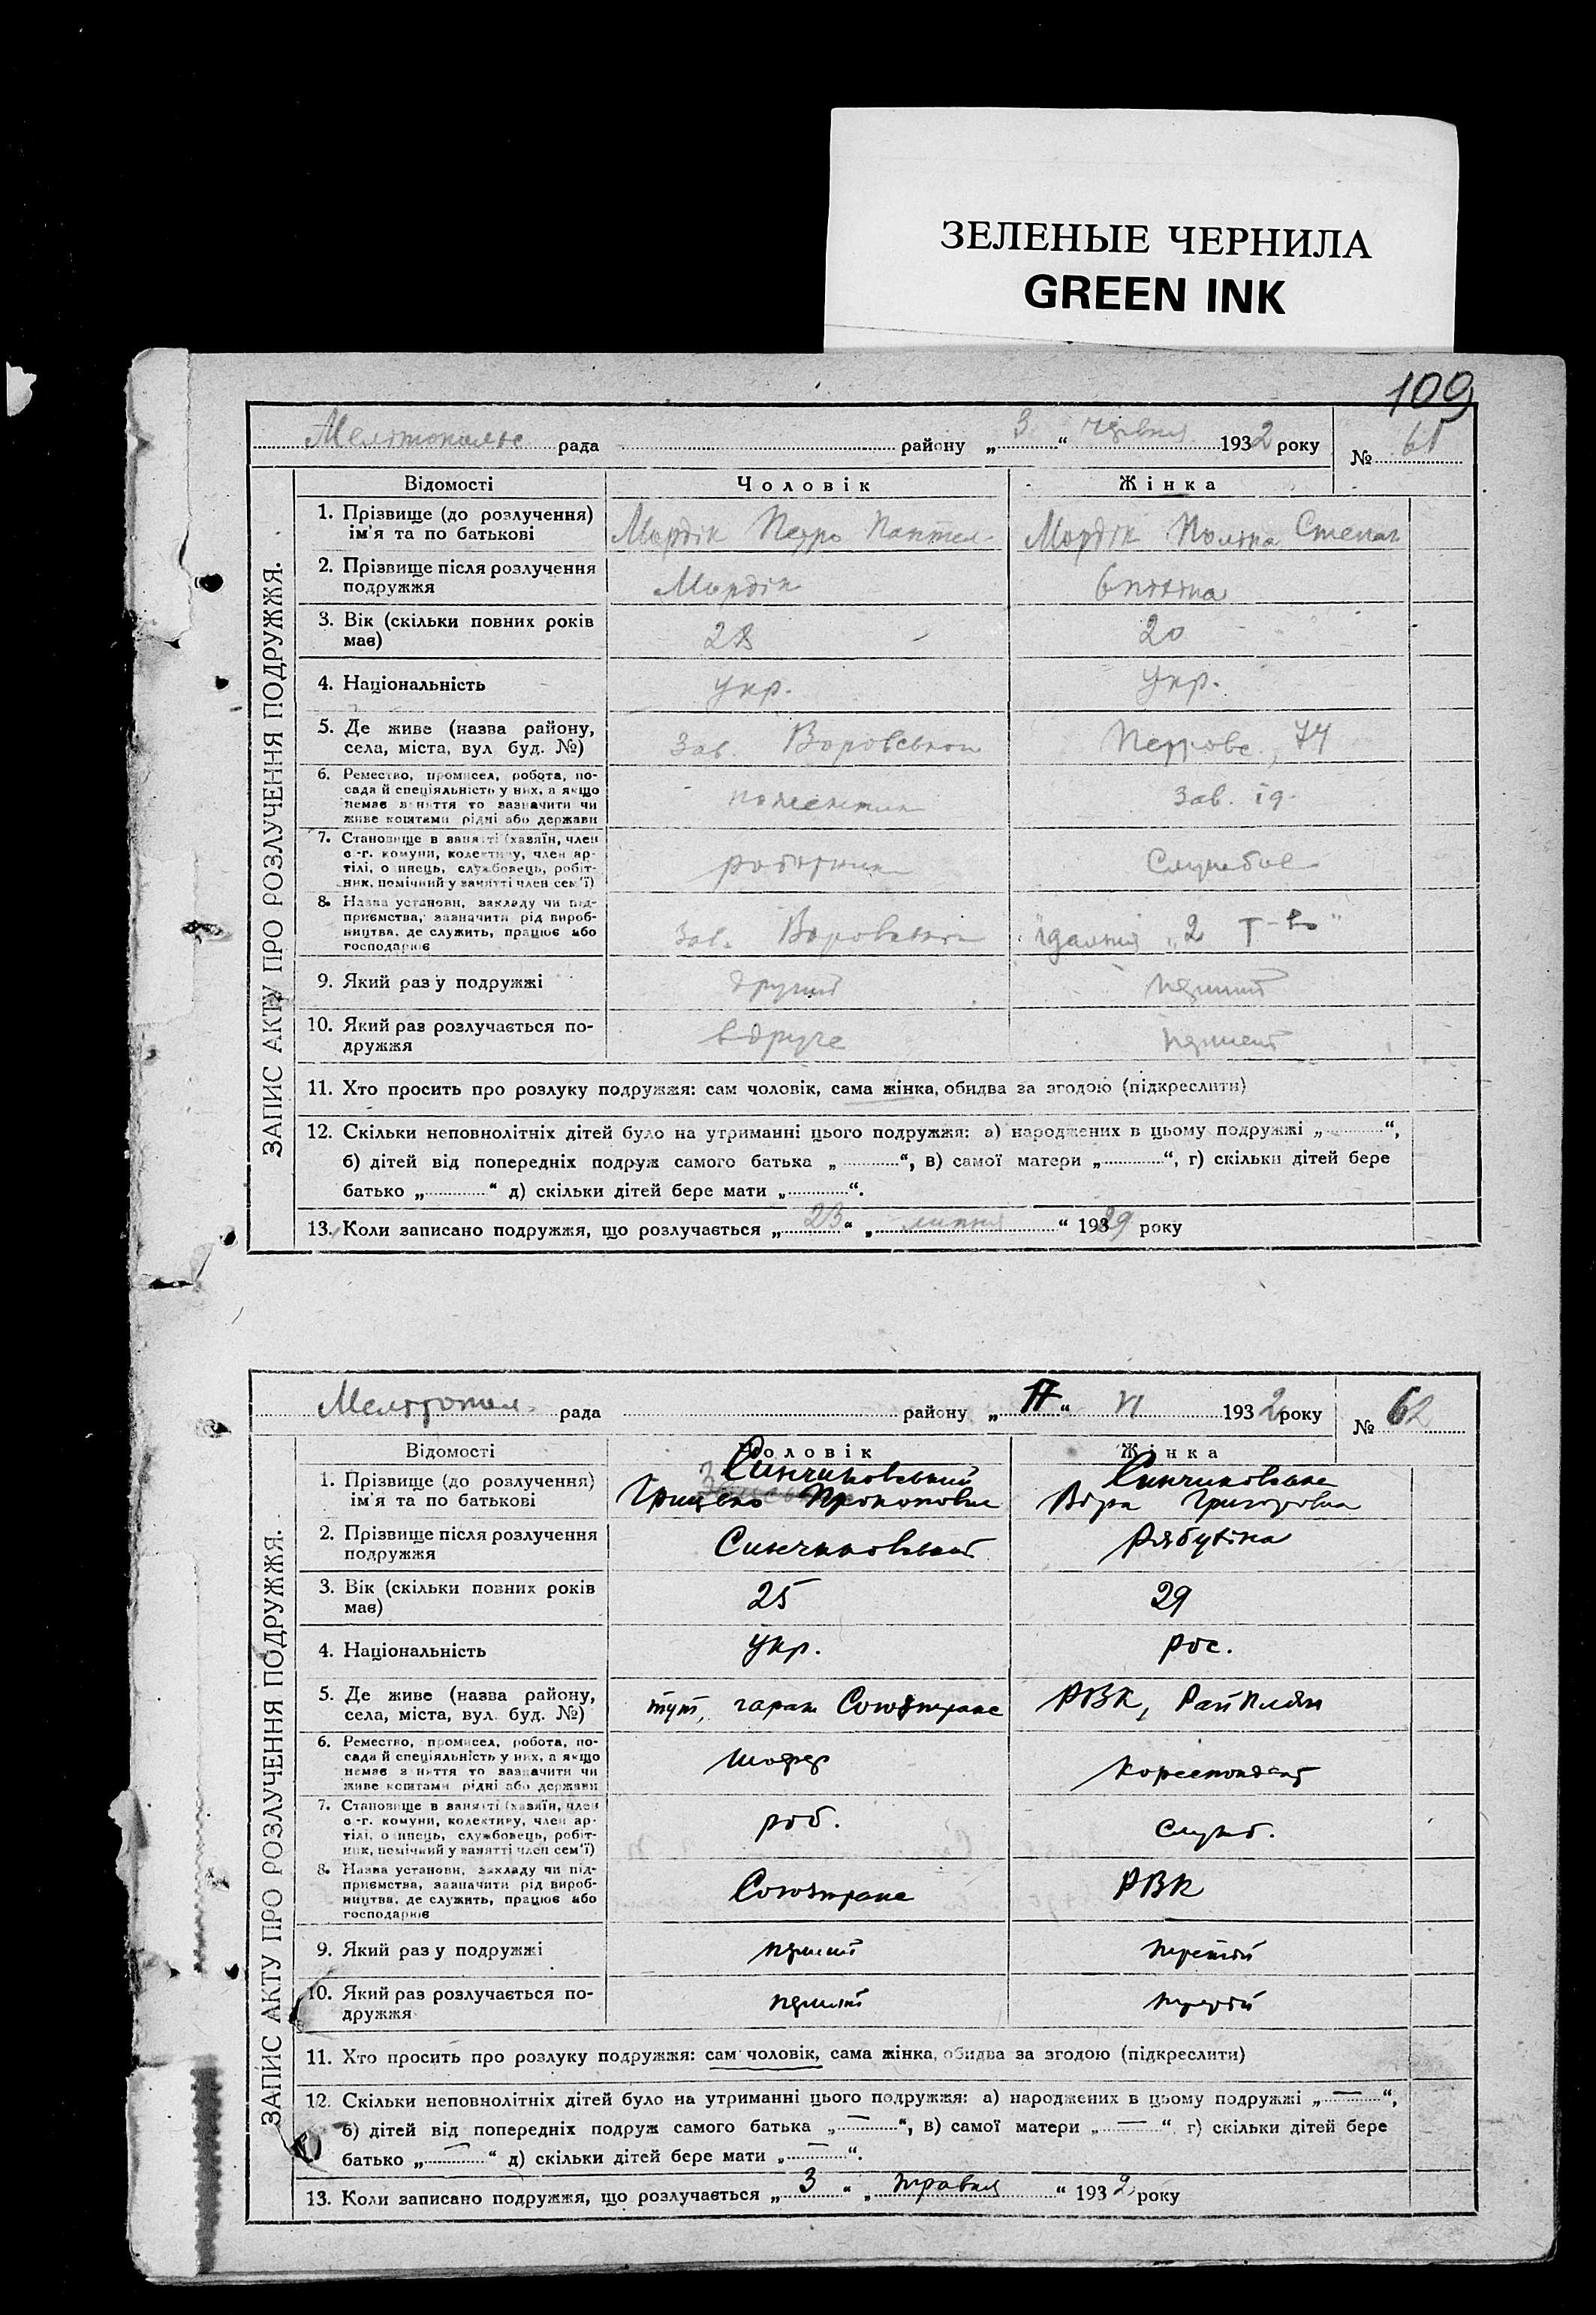 ЗЕЛЕНЫЕ ЧЕРНИЛА
GREEN INK
109
рада району „ 3 “ червня 1932 року № 61
ЗАПИС АКТУ ПРО РОЗЛУЧЕННЯ ПОДРУЖЖЯ.
Відомості Чоловік Жінка
1. Прізвище (до розлучення)
ім'я та по батькові
Мордік Петро Мордік Степан
2. Прізвище після розлучення
подружжя
Мордік
3. Вік (скільки повних років
має)
28 20
4. Національність
укр. укр.
5. Де живе (назва району,
села, міста, вул буд. №)
Зав. 74
6. Ремество, промисел, робота, по-
сада й спеціяльність у них, а якщо
немає заняття то зазначити чи
живе коштами рідні або держави
Зав. їд.
7. Становище в занятті (хазяїн, член
с.-г. комуни, колективу, член ар-
тілі, одинець, службовець, робіт-
ник, помічний у занятті член сем'ї)
робітник Службов
8. Назва установи, закладу чи під-
приємства, зазначити рід вироб-
ництва, де служить, працює або
господарює
Зав. їдальня „2 т-во"
9. Який раз у подружжі
другий перший
10. Який раз розлучається по-
дружжя
вдруге
11. Хто просить про розлуку подружжя: сам чоловік, сама жінка, обидва за згодою (підкреслити)
12. Скільки неповнолітніх дітей було на утриманні цього подружжя: а) народжених в цьому подружжі „ “,
б) дітей від попередніх подруж самого батька „ “, в) самої матери „ “, г) скільки дітей бере
батько „ “ д) скільки дітей бере мати „ “.
13. Коли записано подружжя, що розлучається „ 23 “ „ липня “ 1929 року
Мелітопол. рада району „ 17 “ VI 1932 року № 62
ЗАПИС АКТУ ПРО РОЗЛУЧЕННЯ ПОДРУЖЖЯ.
Відомості Чоловік Жінка
1. Прізвище (до розлучення)
ім'я та по батькові
Прокопович Віра Григоровна
2. Прізвище після розлучення
подружжя
3. Вік (скільки повних років
має)
25 29
4. Національність
укр. рос.
5. Де живе (назва району,
села, міста, вул. буд. №)
тут, гараж Союзтранс РВК, Райплан
6. Ремество, промисел, робота, по-
сада й спеціяльність у них, а якщо
немає заняття то зазначити чи
живе коштами рідні або держави
шофер Кореспондент
7. Становище в занятті (хазяїн, член
с.-г. комуни, колективу, член ар-
тілі, одинець, службовець, робіт-
ник, помічний у занятті член сем'ї)
роб. служб.
8. Назва установи, закладу чи під-
приємства, зазначити рід вироб-
ництва, де служить, працює або
господарює
Союзтранс РВК
9. Який раз у подружжі
перший третій
10. Який раз розлучається по-
дружжя
перший третій
11. Хто просить про розлуку подружжя: сам чоловік, сама жінка, обидва за згодою (підкреслити)
12. Скільки неповнолітніх дітей було на утриманні цього подружжя: а) народжених в цьому подружжі „ — “,
б) дітей від попередніх подруж самого батька „ — “, в) самої матери „ — “ г) скільки дітей бере
батько „ — “ д) скільки дітей бере мати „ — “.
13. Коли записано подружжя, що розлучається „ 3 “ „ травня “ 1932 року